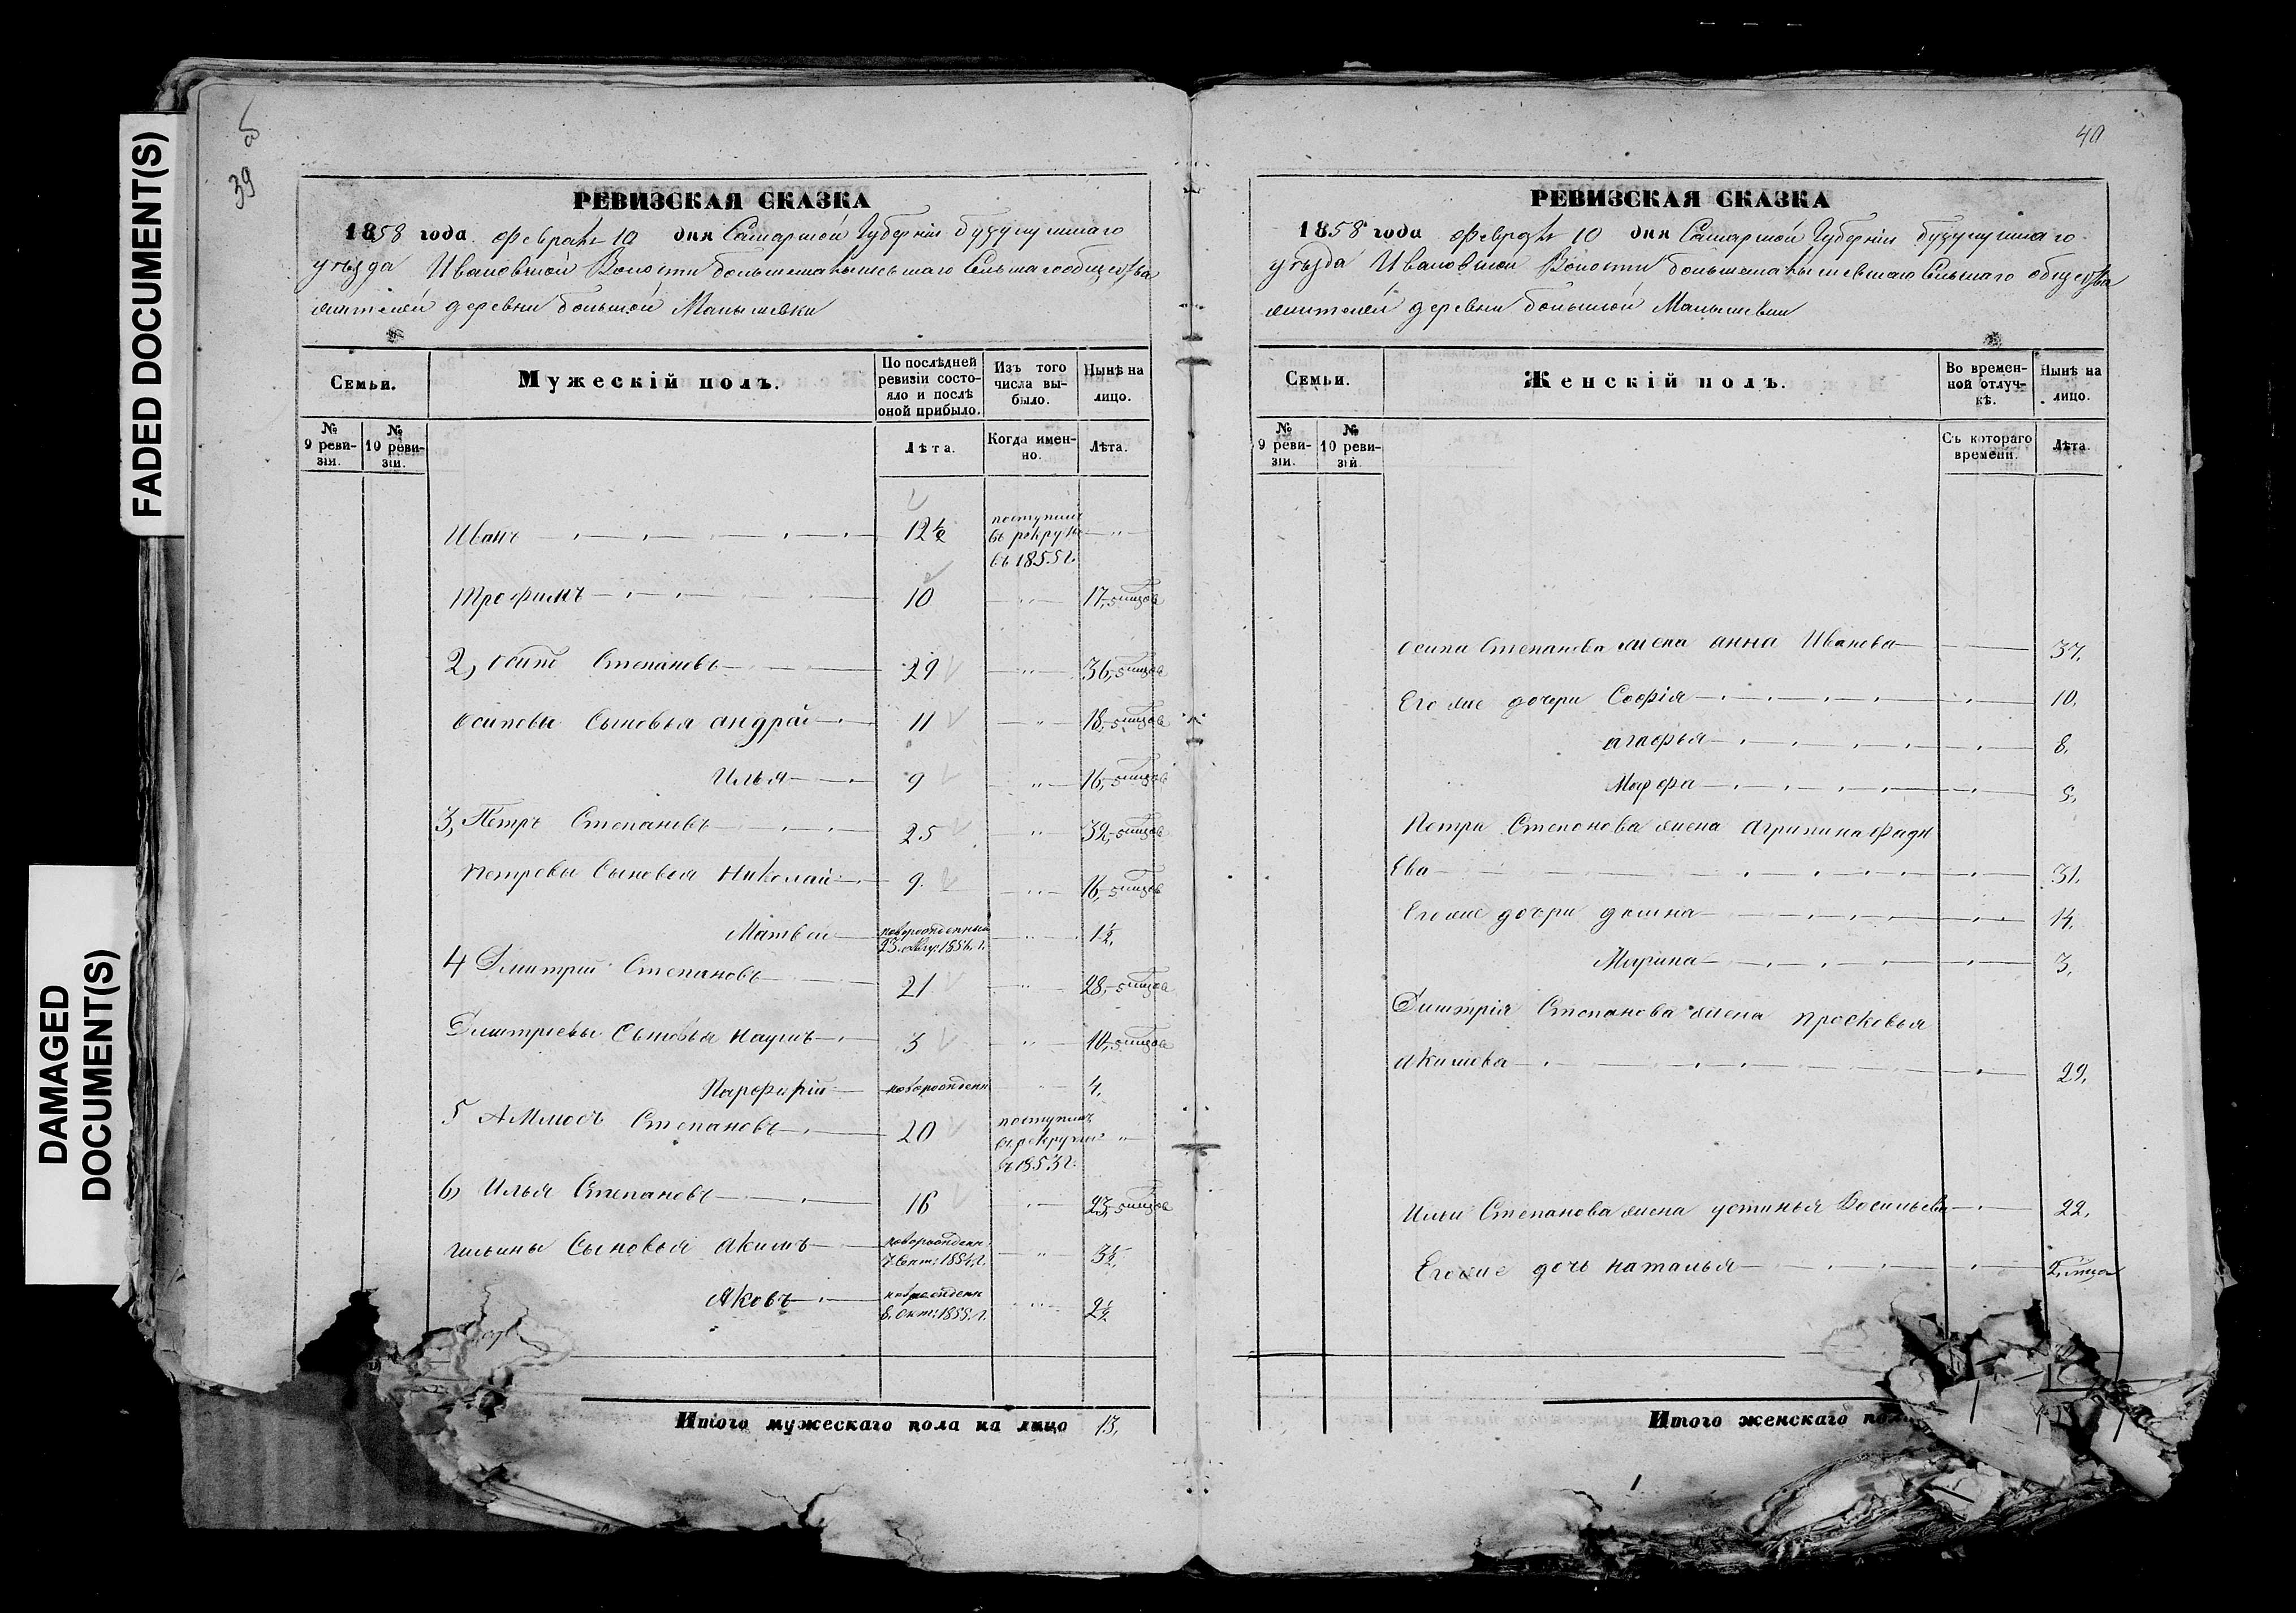 FADED DOCUMENT(S)
DAMAGED
DOCUMENT(S)
39
РЕВИЗСКАЯ СКАЗКА
1858 года февраля 10 дня Самарской Губерніи бузулуцкаго
уѣзда Ивановской Волости большемалышевскаго Сельскаго общества
жителей деревни большой Малышевки
Семьи.
Мужескій полъ.
По послѣдней ревизіи состояло и послѣ оной прибыло.
Изъ того числа выбыло.
Нынѣ на лицо.
№ 9 ревизіи.
№ 10 ревизіи.
Лѣта.
Когда именно.
Лѣта.
Иванъ 12½ поступилъ въ рекруты въ 1855 г. "
Трофимъ 10 " 17,
2, осипъ Степановъ 29 " 36,
осиповы Сыновья андрей 11 " 18,
Илья 9 " 16,
3, Петръ Степановъ 25 " 32,
Петровы Сыновья Николай 9. " 16,
Матвей новорожденный 23. 1856. г. " 1½,
4 Дмитрій Степановъ 21 " 28,
Дмитріевы Сыновья наумъ 3 " 10,
Парфирій новорожденн " 4,
5 Степановъ 20 поступилъ въ рекруты въ 1853 г. "
6, Илья Степановъ 16 " 23,
ильины Сыновья Акимъ новорожденн 7. Сент: 1854. г. " 3½,
Яковъ новорожденн 8. Окт: 1855. г. " 2½
Итого мужескаго пола на лицо 13,
40
РЕВИЗСКАЯ СКАЗКА
1858 года февраля 10 дня Самарской Губерніи бузулуцкаго
уѣзда Ивановской Волости большемалышевскаго Сельскаго общества
жителей деревни большой Малышевки
Семьи.
Женскій полъ.
Во временной отлучкѣ.
Нынѣ на лицо.
№ 9 ревизіи.
№ 10 ревизій.
Съ котораго времени.
Лѣта.
осипа Степанова жена анна Иванова 37,
Его же дочери Софія 10,
агафья 8,
Марфа 5,
Петра Степонова жена Агрипина фаде
Ева 31,
Его же дочери домна 14,
Марина 3,
Дмитрія Степанова жена просковья
Акимова 29,
Ильи Степанова жена устинья Васильева 22,
Его же дочь наталья
Итого женскаго пола